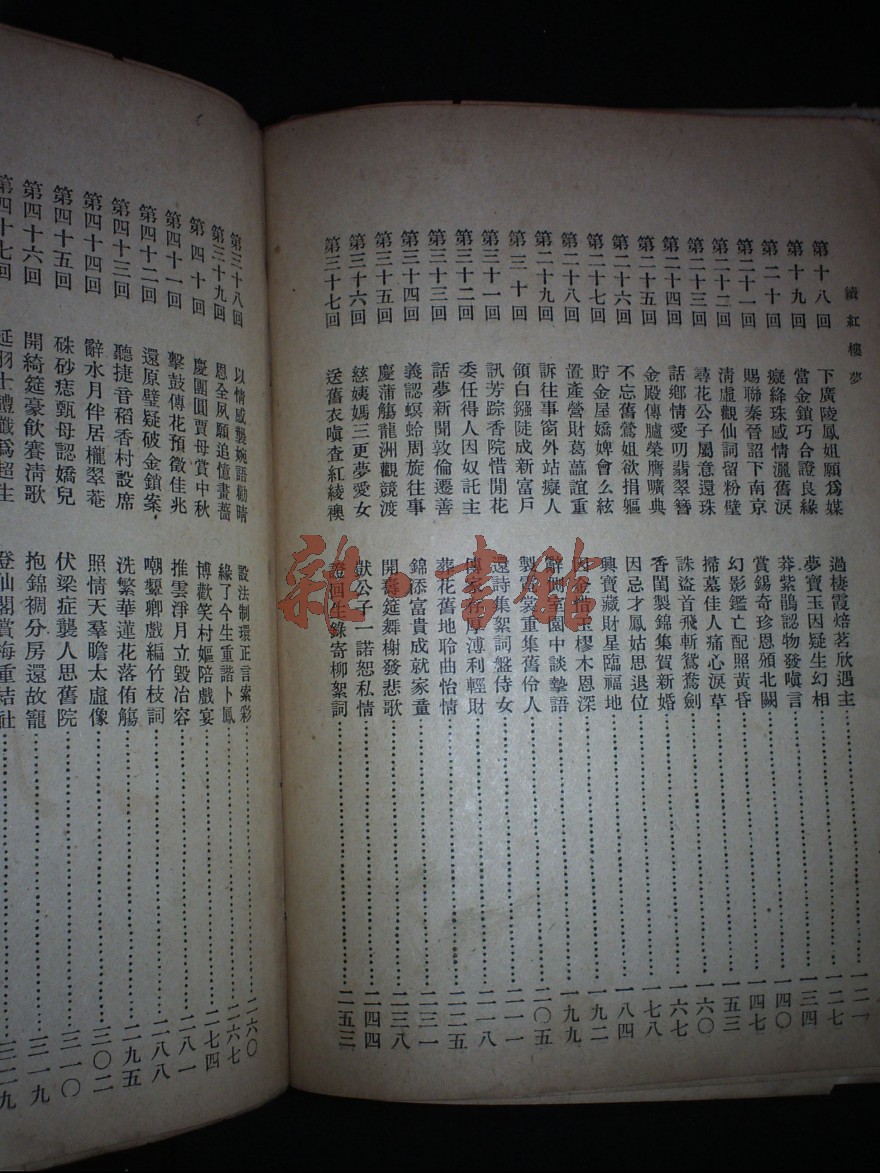 續紅樓夢
第十八回 下廣陵鳳姐願爲媒 過棲霞焙茗欣遇主 一二七
第十九回 當金鎖巧合證良緣 夢寶玉因疑生幻相 一三四
第二十回 癡絳珠感情灑舊淚 莽紫鵑認物發嗔言 一四〇
第二十一回 賜聯秦晉詔下南京 賞錫奇珍恩頒北闕 一四七
第二十二回 淸虛觀仙詞留粉壁 幻影鑑亡配照黃昏 一五三
第二十三回 尋花公子屬意還珠 掃墓佳人痛心淚草 一六〇
第二十四回 話鄕情愛叨翡翠簪 誅盜首飛斬鴛鴦劍 一六七
第二十五回 金殿傳臚榮膺曠典 香閨製錦集賀新婚 一七八
第二十六回 不忘舊鶯姐欲捐軀 因忌才鳳姑思退位 一八四
第二十七回 貯金屋嬌婢會么絃 興寶藏財星臨福地 一九二
第二十八回 置產營財葛藟誼重 因金惜玉樛木恩深 一九九
第二十九回 訴往事窗外站癡人 園中談摯語 二〇五
第三十回 領白鏹陡成新富戶 製霓裳重集舊伶人 二一一
第三十一回 訊芳踪香院惜閒花 還詩集絮詞盤侍女 二一八
第三十二回 委任得人因奴託主 傳家存厚溥利輕財 二二五
第三十三回 話夢新聞敦倫遷善 葬花舊地聆曲怡情 二三一
第三十四回 義認螟蛉周旋往事 錦添富貴成就家童 二三八
第三十五回 慶蒲觴龍洲觀競渡 開壽筵舞榭發悲歌 二四四
第三十六回 慈姨媽三更夢愛女 獃公子一諾恕私情 二五三
第三十七回 送舊衣嗔查紅綾襖 證回生錄寄柳絮詞
第三十八回 以情感襲婉語勸晴 設法制環正言索彩 二六〇
第三十九回 恩全夙願追憶畫薔 緣了今生重諧卜鳳 二六七
第四十回 慶團圓賈母賞中秋 博歡笑村嫗陪戲宴 二七四
第四十一回 擊鼓傳花預徵佳兆 推雲淨月立毀冶容 二八一
第四十二回 還原璧疑破金鎖案 嘲顰卿戲編竹枝詞 二八八
第四十三回 聽捷音稻香村設席 洗繁華蓮花落侑觴 二九五
第四十四回 辭水月伴居櫳翠菴 照情天羣瞻太虛像 三〇二
第四十五回 硃砂痣甄母認嬌兒 伏梁症襲人思舊院 三一〇
第四十六回 開綺筵豪飲賽淸歌 抱錦裯分房還故寵 三一九
第四十七回 延羽士禮懺爲超生 登仙閣賞梅重結社 三二九
雜書館